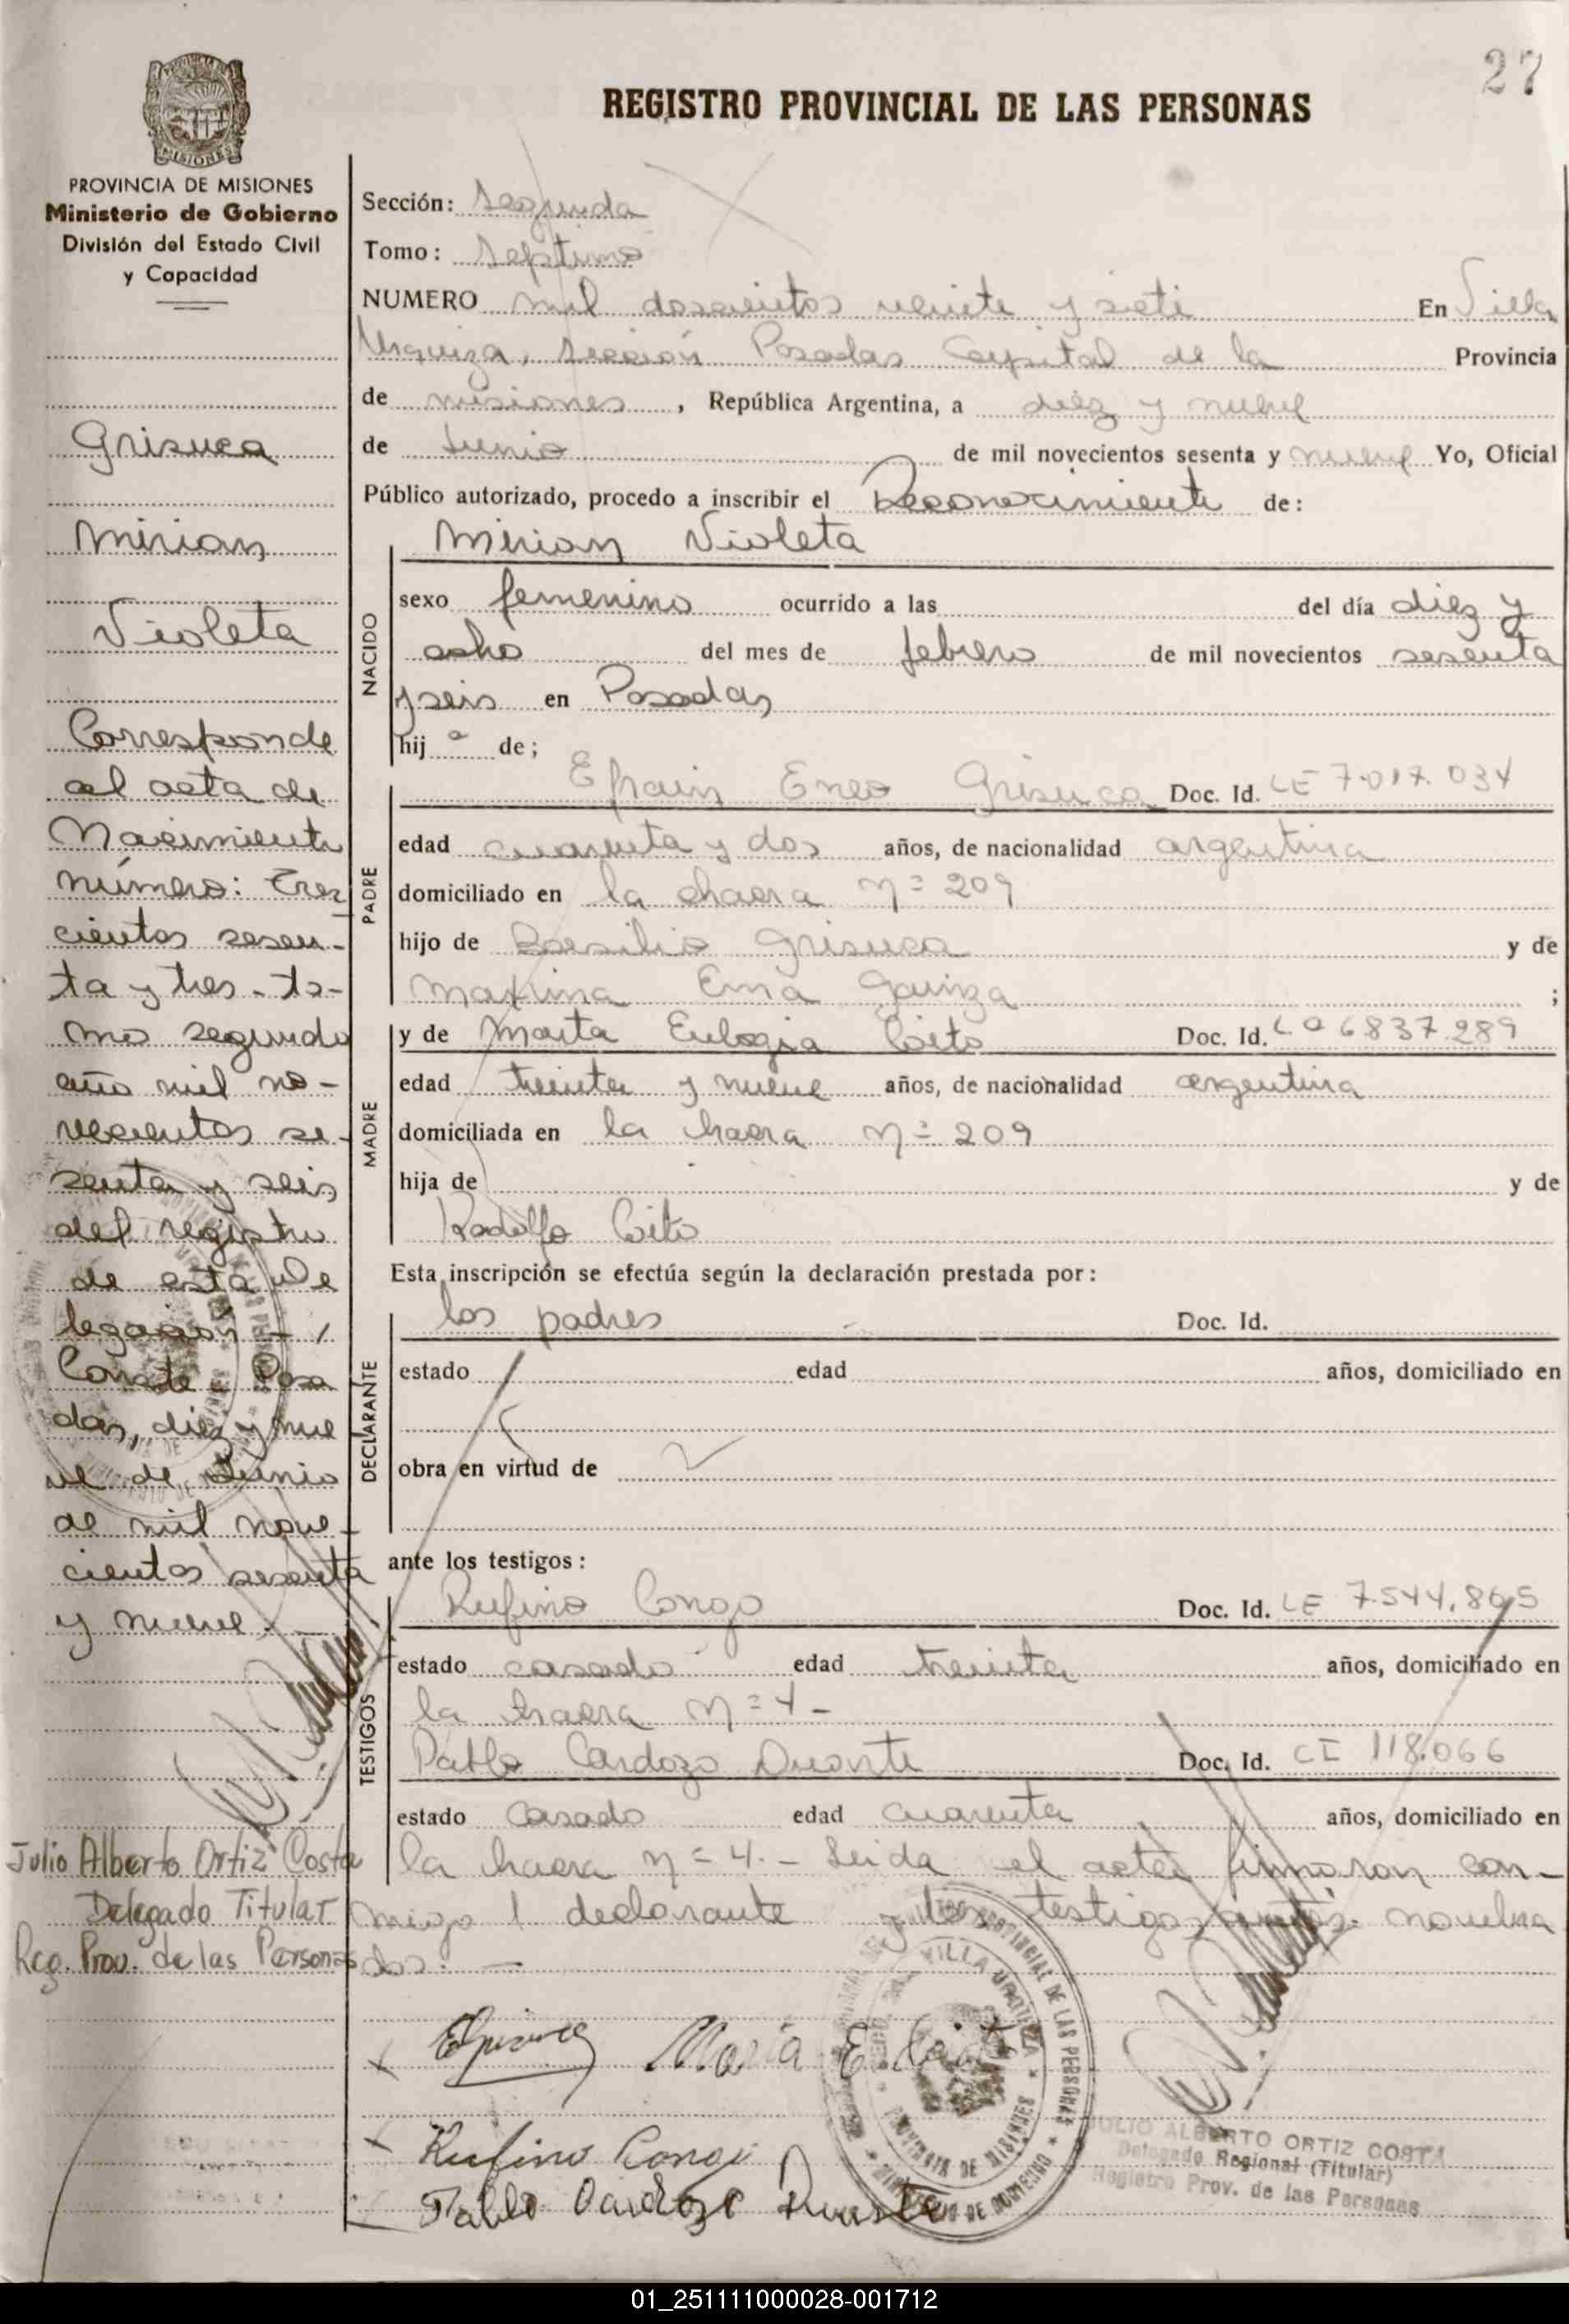 27
REGISTRO PROVINCIAL DE LAS PERSONAS
MISIONES
PROVINCIA DE MISIONES
Ministerio de Gobierno
División del Estado Civil
y Capacidad
Grisuca
Mirian
Violeta
Corresponde
al acta de
Nacimiento
número: Tres
cientos sesen-
ta y tres - to-
mo segundo
año mil no-
vecientos se-
senta y seis
del registro
de esta De
legación -
Conste - Posa
das, diez y nue
ve de Junio
de mil nove-
cientos sesenta
y nueve.-
Julio Alberto Ortiz Costa
Delegado Titular
Reg. Prov. de las Personas
Sección: Segunda
Tomo: Septimo
NUMERO mil doscientos veinte y siete En Villa
Urquiza, Sección Posadas Capital de la Provincia
de misiones, República Argentina, a diez y nueve
de Junio de mil novecientos sesenta y nueve Yo, Oficial
Público autorizado, procedo a inscribir el Reconocimiento de:
NACIDO
Mirian Violeta
sexo femenino ocurrido a las del día diez y
ocho del mes de febrero de mil novecientos sesenta
y seis en Posadas
hija de;
PADRE
Efrain Eneo Grisuca Doc. Id. LE 7.017.034
edad cuarenta y dos años, de nacionalidad argentina
domiciliado en la chacra Nº 209
hijo de Basilio Grisuca y de
Maxima Ema ;
MADRE
y de Marta Eulogia Coito Doc. Id. LC 6837.289
edad treinta y nueve años, de nacionalidad argentina
domiciliada en la chacra Nº 209
hija de y de
Rodolfo Coito
Esta inscripción se efectúa según la declaración prestada por:
DECLARANTE
los padres Doc. Id.
estado edad años, domiciliado en
obra en virtud de
ante los testigos:
TESTIGOS
Rufino Congo Doc. Id. LE 7.544.865
estado casado edad treinta años, domiciliado en
la chacra Nº 4 -
Pablo Cardozo Duarte Doc. Id. CI 118.066
estado Casado edad cuarenta años, domiciliado en
la chacra Nº 4. - Leida el acta firmaron con-
migo l declarante y los testigos nombra
dos. -
Maria E. Coito
Rufino Congo
Pablo Cardozo Duarte
VILLA URQUIZA
PROVINCIA DE MISIONES
MINISTERIO DE GOBIERNO
JULIO ALBERTO ORTIZ COSTA
Delegado Regional (Titular)
Registro Prov. de las Personas
01_251111000028-001712